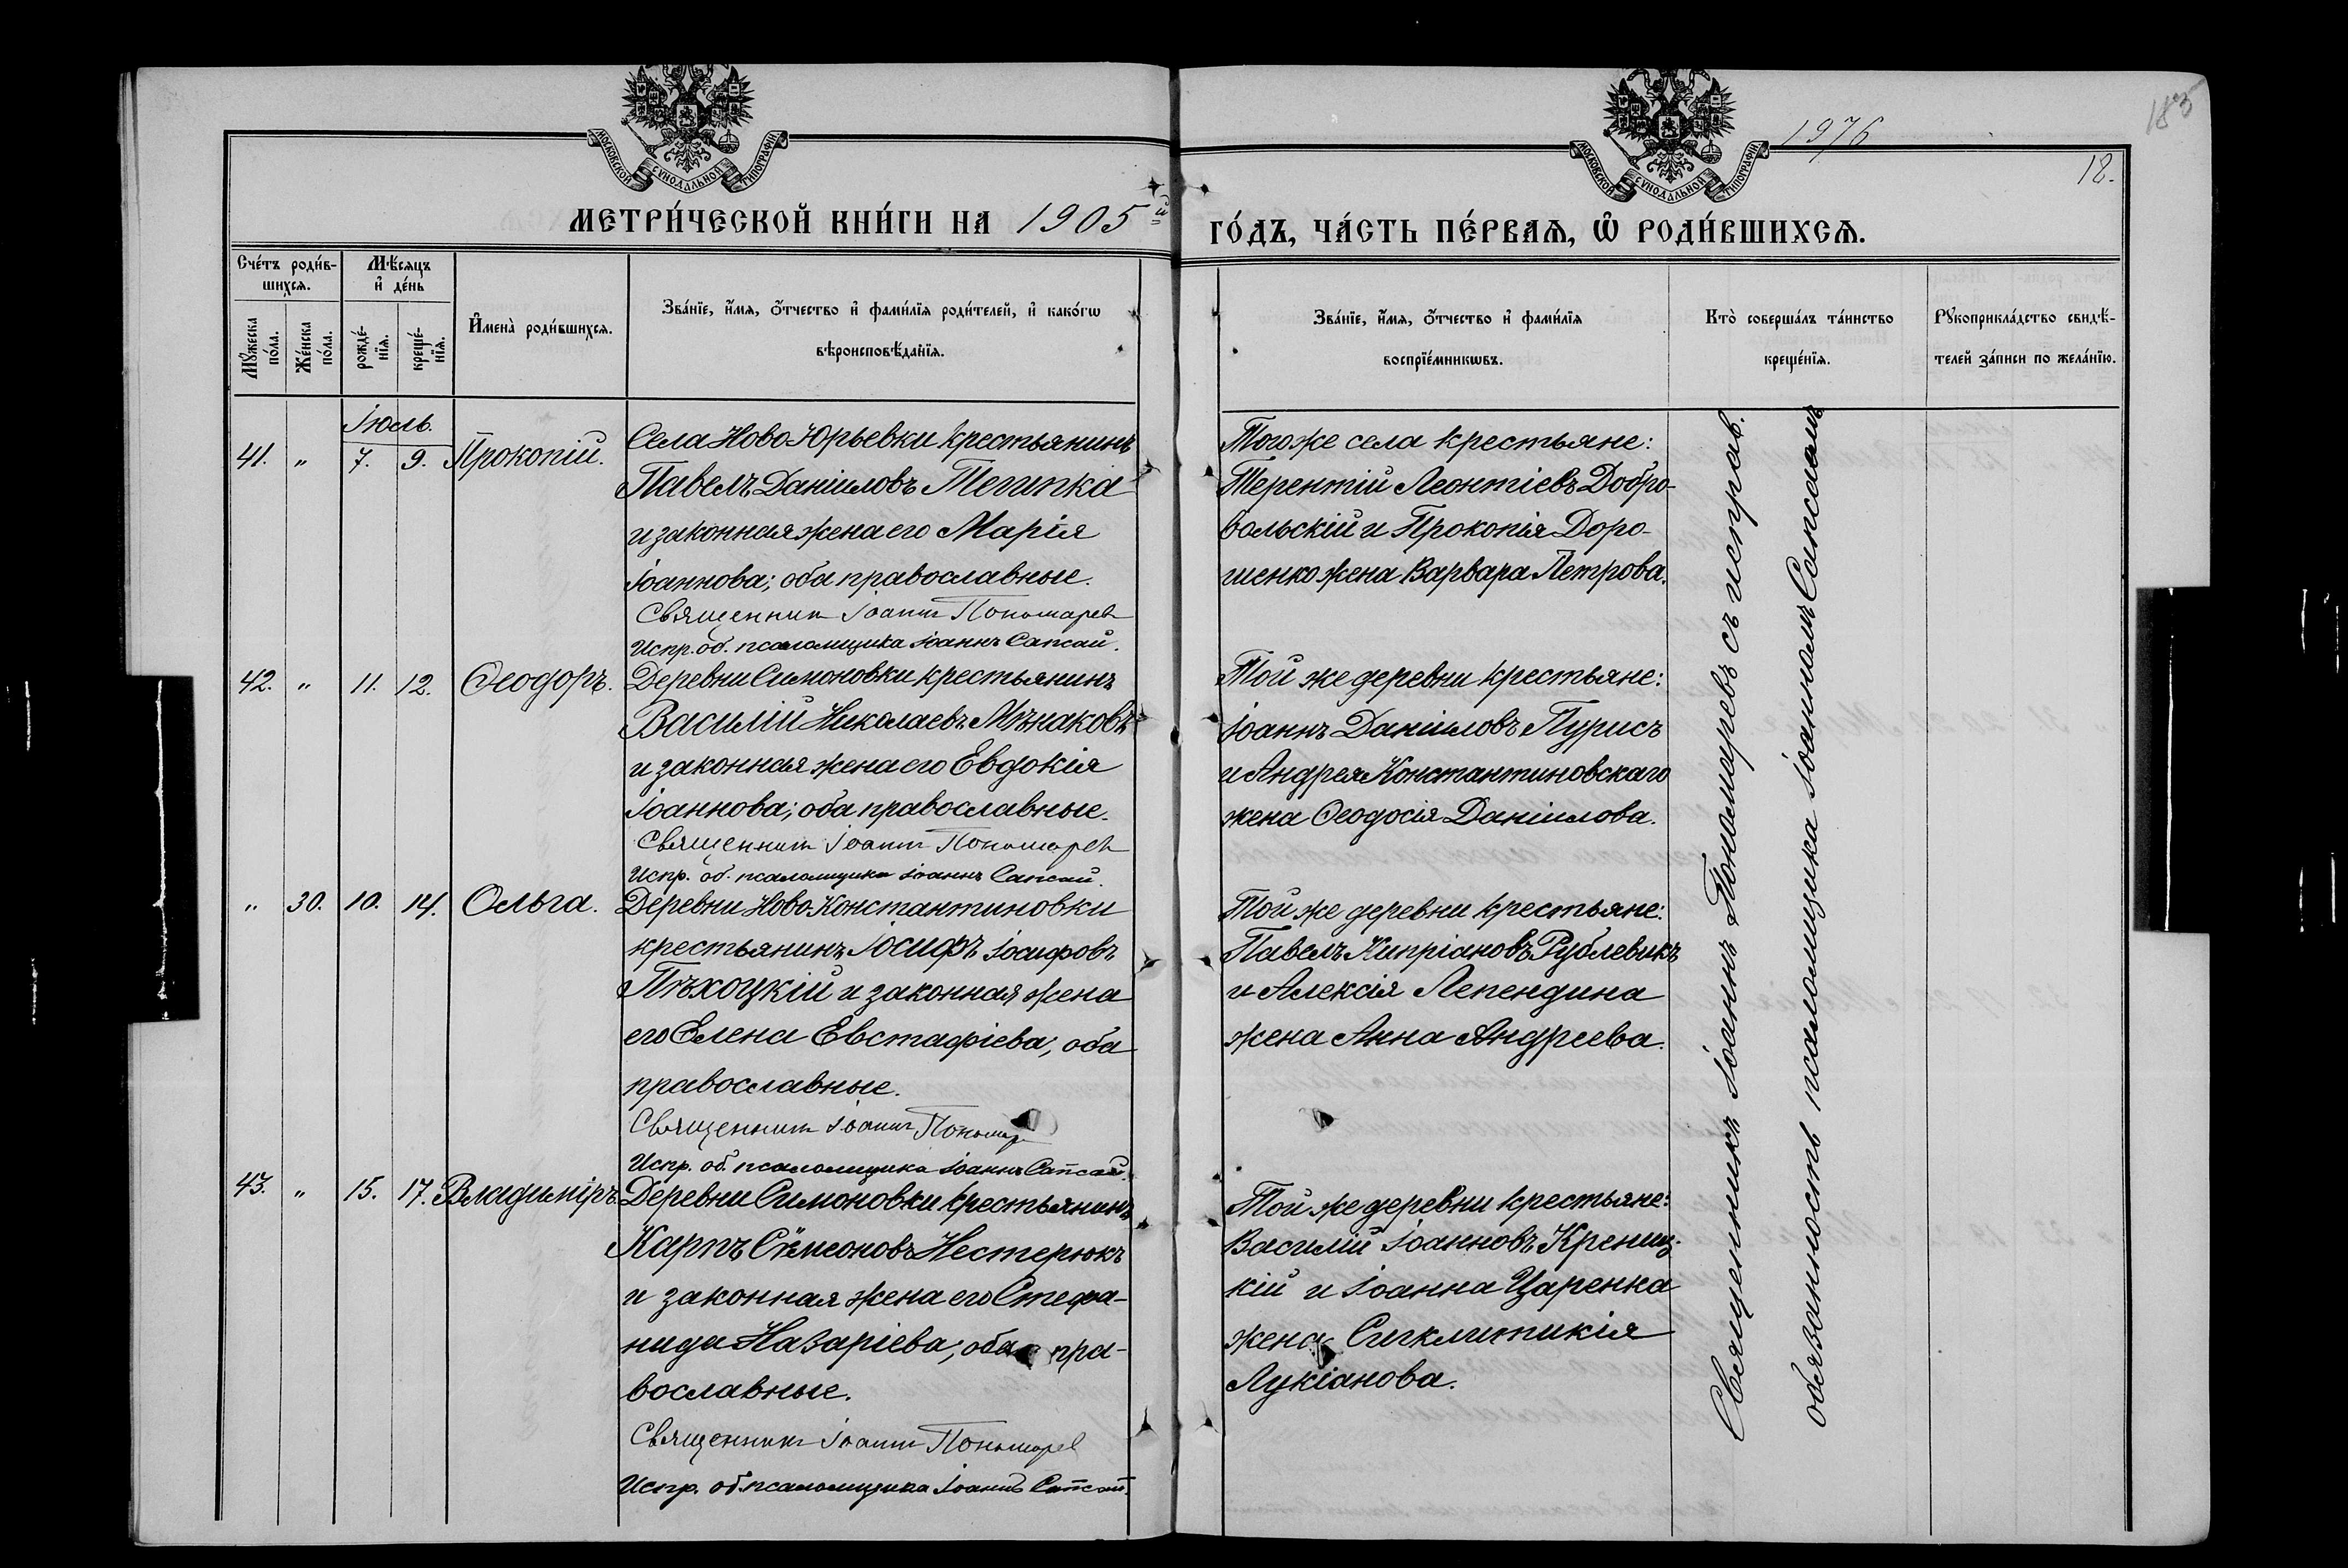 183
1976
12.
МОСКОВСКОЙ СѴНОДАЛЬНОЙ ТИПОГРАФІИ
МОСКОВСКОЙ СѴНОДАЛЬНОЙ ТИПОГРАФІИ
МЕТРИ́ЧЕСКОЙ КНИ́ГИ НА 1905й ГО́ДЪ, ЧА́СТЬ ПЕ́РВАѦ, Ѿ РОДИ́ВШИХСѦ.
Сче́тъ роди́в-
шихсѧ.
Мѣ́сяцъ
и҆ де́нь
Мꙋ́жеска
по́ла.
Же́нска
по́ла.
рожде́-
нїѧ.
креще́-
нїѧ.
И҆мена̀ роди́вшихсѧ.
Зва́нїе, и҆́мѧ, ѻ҆́тчество и҆ фами́лїѧ роди́телей, и҆ како́гѡ
вѣроисповѣ́данїѧ.
Зва́нїе, и҆́мѧ, ѻ҆́тчество и҆ фами́лїѧ
воспрїе́мникѡвъ.
Кто̀ соверша́лъ та́инство
креще́нїѧ.
Рꙋкоприкла́дство свидѣ́-
телей за́писи по жела́нїю.
Іюль.
41. " 7. 9. Прокопій.
Села Ново Юрьевки крестьянинъ
Павелъ Даніиловъ
и законная жена его Марія
Іоаннова; оба православные.
Священник Іоанн Пономарев
Испр. об. псаломщика Іоаннъ Сапсай.
Того же села крестьяне:
Терентій Леонтіевъ Добро-
вольскій и Прокопія Доро-
шенко жена Варвара Петрова.
42. " 11. 12. Ѳеодоръ.
Деревни Симоновки крестьянинъ
Василій Николаевъ
и законная жена его Евдокія
Іоаннова; оба православные.
Священник Іоанн Пономарев
Испр. об. псаломщика Іоаннъ Сапсай.
Той же деревни крестьяне:
Іоаннъ Даніиловъ Пурисъ
и Андрея Константиновскаго
жена Ѳеодосія Даніилова.
" 30. 10. 14. Ольга.
Деревни Ново Константиновки
крестьянинъ Іосифъ Іосифовъ
Пѣхоцкій и законная жена
его Елена Евстафіева; оба
православные.
Священник Іоанн Пономар
Испр. об. псаломщика Іоаннъ Сапсай.
Той же деревни крестьяне:
Павелъ Кипріановъ Рублевикъ
и Алексія Лепендина
жена Анна Андреева.
43. " 15. 17. Владиміръ.
Деревни Симоновки крестьянинъ
Карпъ Сѵмеоновъ Нестерюкъ
и законная жена его Стефа-
нида Назаріева; оба пра-
вославные.
Священник Іоанн Пономарев
Испр. об. псаломщика Іоаннъ Сапсай.
Той же деревни крестьяне:
Василій Іоанновъ Крениц-
кій и Іоанна Царенка
жена Сигклитикія
Лукіанова.
Священникъ Іоаннъ Пономаревъ съ исправ.
обязанность псаломщика Іоанномъ Сапсаемъ